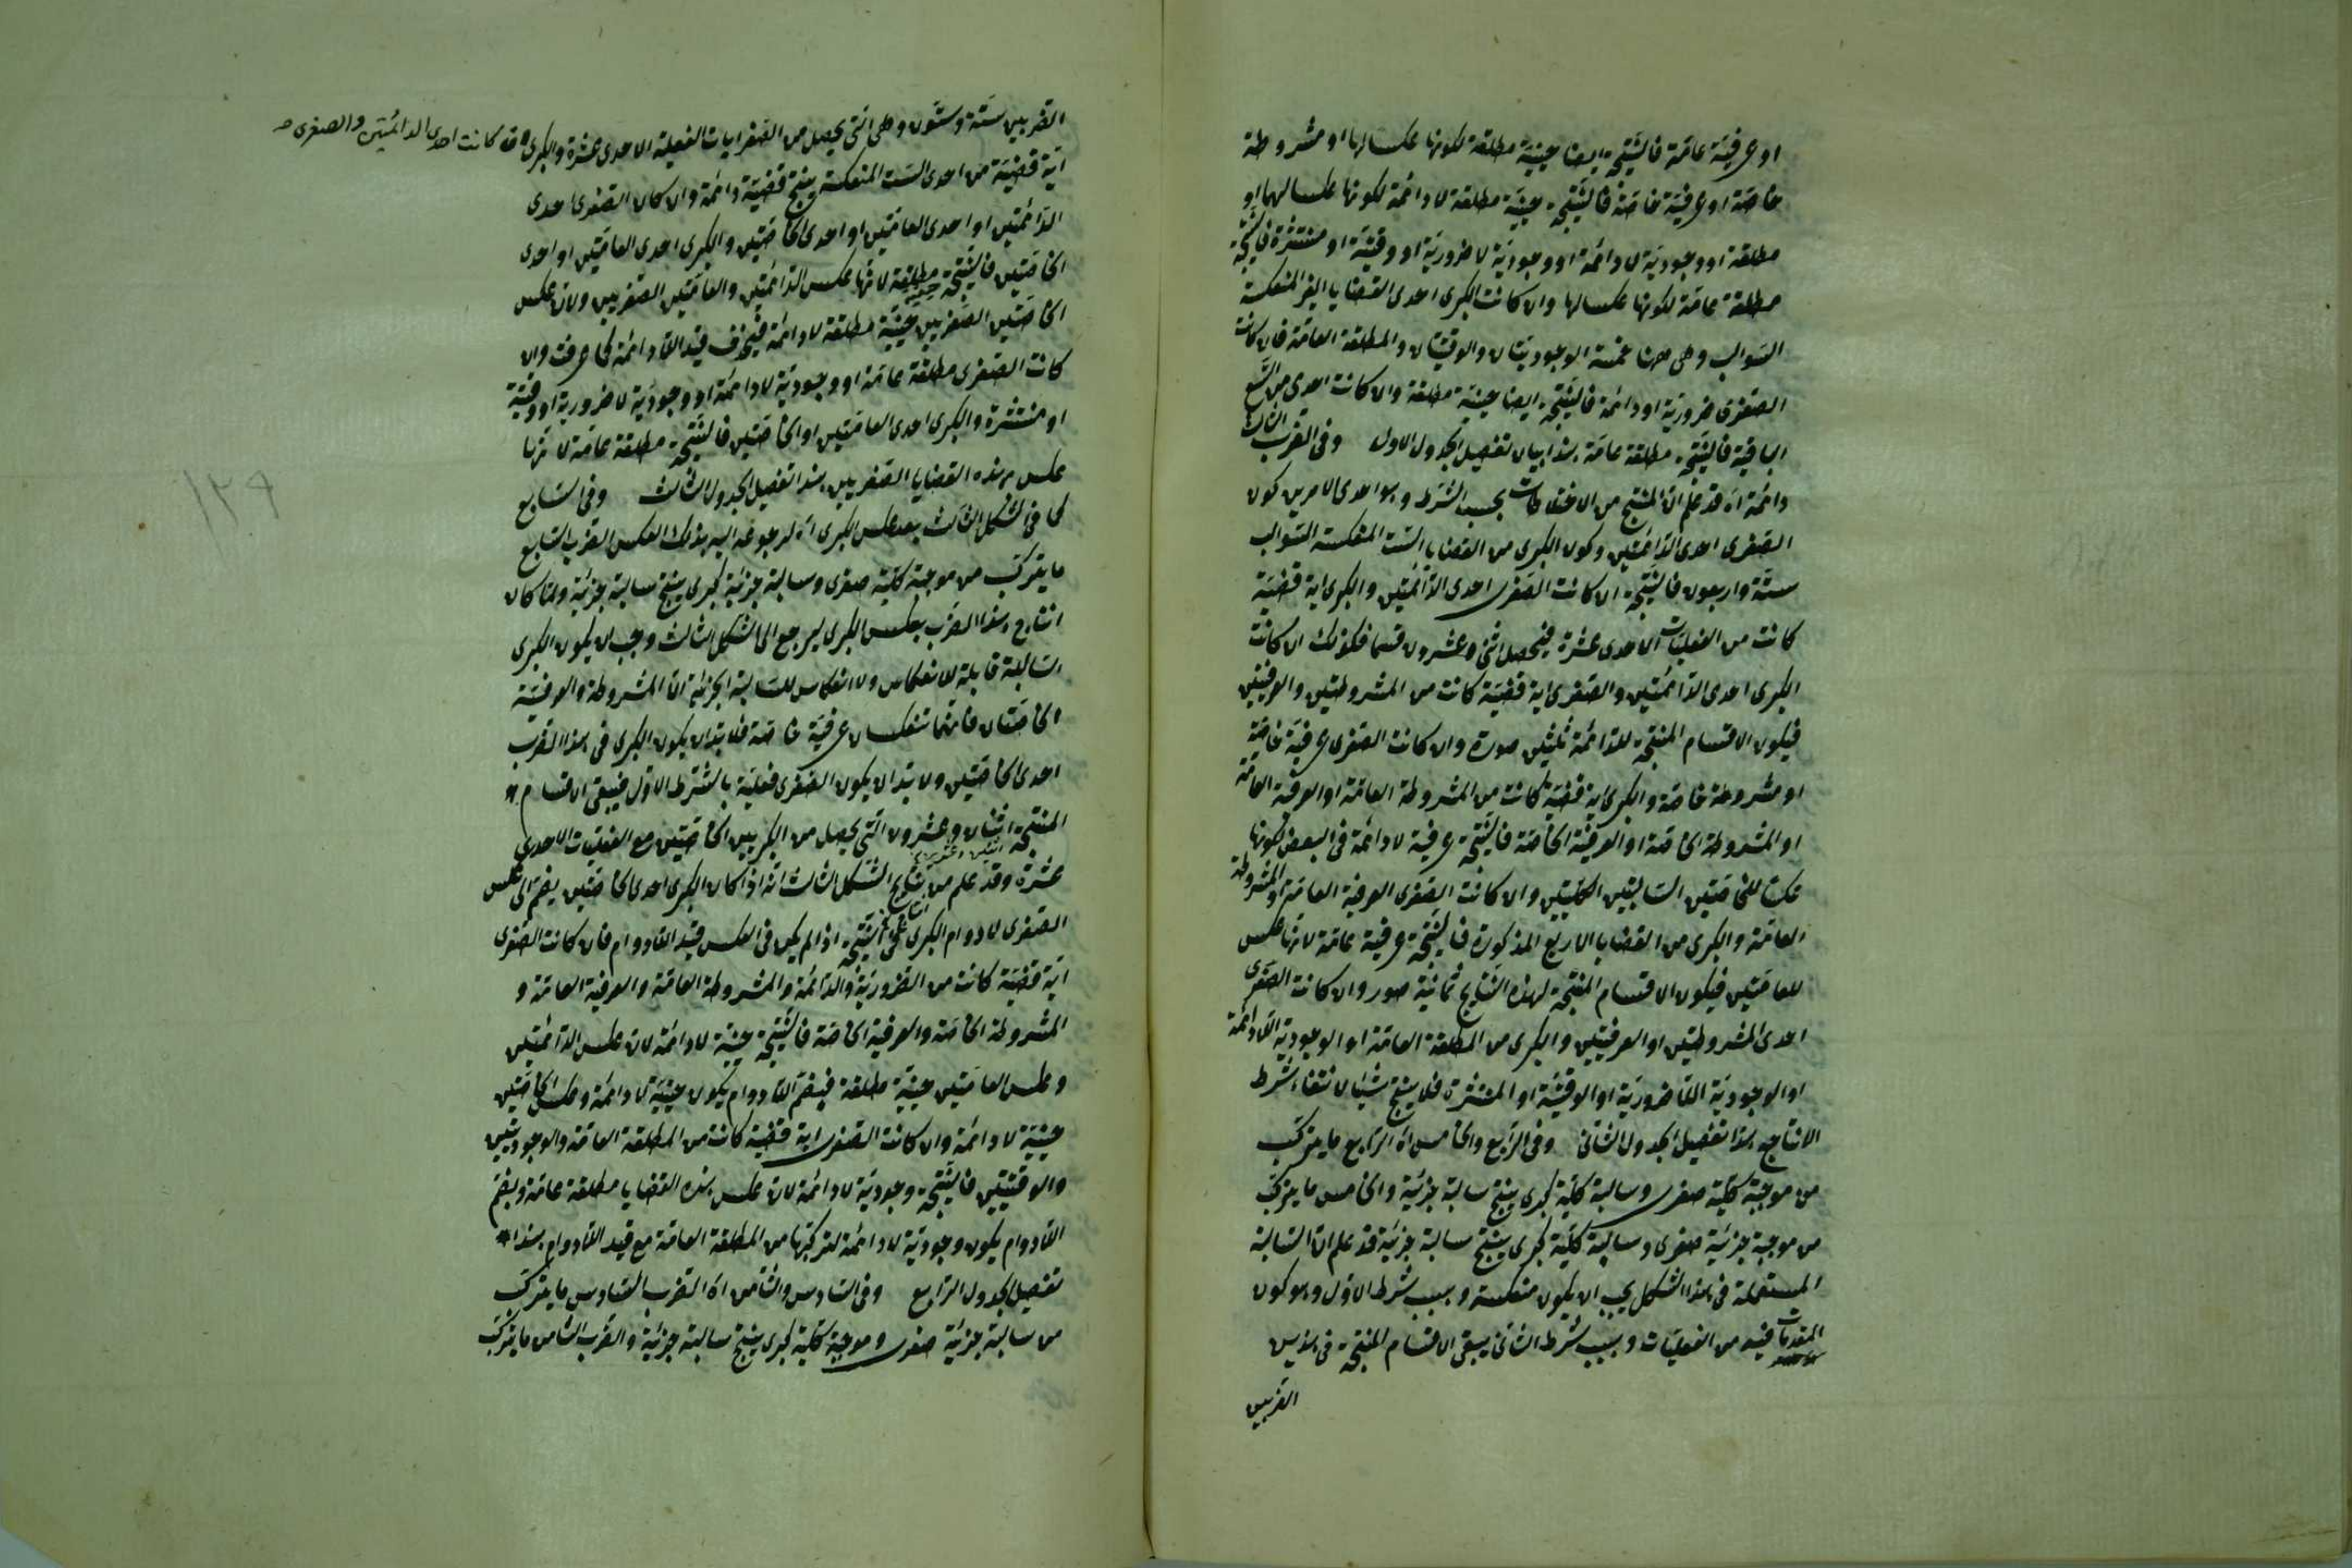 او عرفيّة عامّة فالنتيجة ايضا حينيّة مطلقة لكونها عكسا لها او مشروطة
خاصّة او عرفيّة خاصّة فالنتيجة حينيّة مطلقة لا دائمة لكونها عكسا لهما او
مطلقة او وجوديّة لا دائمة او وجوديّة لا ضروريّة او وقتيّة او منتشرة فالنتيجة
مطلقة عامّة لكونها عكسا لها وان كانت الكبرى احدى القضايا الغير المنعكسة
السوالب وهى ههنا خمسة الوجوديتان والوقتيتان والمطلقة العامّة فان كانت
الصغرى ضروريّة او دائمة فالنتيجة ايضا حينيّة مطلقة وان كانت احدى من التسع
الباقية فالنتيجة مطلقة عامّة هذا بيان تفصيل الجدول الاول وفى الضرب الثالث
دائمة اه قد علم انّ المنتج من الاختلاطات بحسب الشرط وهو احدى الامرين كون
الصغرى احدى الدّائمتين وكون الكبرى من القضايا الستّ المنعكسة السوالب
ستّة واربعون فالنتيجة ان كانت الصغرى احدى الدّائمتين والكبرى اية قضيّة
كانت من الفعليّات الاحدى عشرة فيحصل اثنى وعشرون قسما فكذلك ان كانت
الكبرى احدى الدّائمتين والصغرى اية قضيّة كانت من المشروطتين والعرفيتين
فيكون الاقسام المنتجة للدّائمة ثلثين صورة وان كانت الصغرى عرفيّة خاصّة
او مشروطة خاصّة والكبرى اية قضيّة كانت من المشروطة العامّة او العرفية العامّة
او المشروطة الخاصّة او العرفيّة الخاصّة فالنتيجة عرفية لا دائمة فى البعض لكونها
عكسا للخاصّتين السالبتين الكليّتين وان كانت الصغرى العرفية العامّة او المشروطة
العامّة والكبرى من القضايا الاربع المذكورة فالنتيجة عرفية عامّة لانّها عكس
للعامّتين فيكون الاقسام المنتجة لهذه النتايج ثمانية صور وان كانت الصغرى
احدى المشروطتين او العرفيتين والكبرى من المطلقة العامّة او الوجوديّة اللّادائمة
او الوجوديّة اللّاضروريّة او الوقتيّة او المنتشرة فلا ينتج شيئا لانتفاء شرط
الانتاج هذا تفصيل الجدول الثانى وفى الرّابع والخامس اه الرّابع ما يتركّب
من موجبة كليّة صغرى وسالبة كليّة كبرى ينتج سالبة جزئيّة والخامس ما يتركّب
من موجبة جزئيّة صغرى وسالبة كليّة كبرى ينتج سالبة جزئيّة قد علم انّ السّالبة
المستعملة فى هذا الشكل يجب ان يكون منعكسة وبسبب شرط الاوّل وهو كون
المقدمات فيه من الفعليّات وبسبب شرط الثانى يبقى الاقسام المنتجة فى هذين
الضربين
الضربين ستّة وستّون وهى التى يحصل من الصغرايات الفعلية الاحدى عشرة والكبرى ان كانت احدى الدائمتين والصغرى
ايّة قضيّة من احدى السّت المنعكسة ينتج قضيّة دائمة وان كان الصغرى احدى
الدّائمتين او احدى العامّتين او احدى الخاصّتين والكبرى احدى العامّتين او احدى
الخاصّتين فالنتيجة حينية مطلقة لانّها عكس الدّائمتين والعامّتين الصغريين ولانّ عكس
الخاصّتين الصغريين حينيّة مطلقة لا دائمة فيحذف قيد اللّادائمة كما عرفت وان
كانت الصغرى مطلقة عامّة او وجوديّة لا دائمة او وجوديّة لا ضروريّة او وقتيّة
او منتشرة والكبرى احدى العامّتين او الخاصّتين فالنتيجة مطلقة عامّة لانّها
عكس هذه القضايا الصغريين هذا تفصيل الجدول الثالث وفى السّابع
كما فى الشكل الثالث بعد عكس الكبرى اه لرجوعه اليه بذلك العكس الضرب السّابع
ما يتركّب من موجبة كليّة صغرى وسالبة جزئيّة كبرى ينتج سالبة جزئيّة ولمّا كان
انتاج هذا الضرب بعكس الكبرى ليرجع الى الشكل الثالث وجب ان يكون الكبرى
السّالبة قابلة للانعكاس ولا انعكاس للسّالبة الجزئيّة الّا المشروطة والعرفيّة
الخاصّتان فانّهما تنعكسان عرفيّة خاصّة فلا بدّ ان يكون الكبرى فى هذا الضرب
احدى الخاصّتين ولا بدّ ان يكون الصغرى فعليّة بالشّرط الاوّل فيبقى الاقسام
المنتجة اثنان وعشرون التى يحصل من الكبريين الخاصّتين مع الفعليّات الاحدى
عشرة وقد علم من نتايج الشكل الثالث انّه اذا كان الكبرى احدى الخاصّتين يضمّ الى عكس
الصغرى لا دوام الكبرى على انّها النتيجة اذا لم يكن فى العكس قيد اللّادوام فان كانت الصغرى
ايّة قضيّة كانت من الضروريّة والدّائمة والمشروطة العامّة والعرفية العامّة و
المشروطة الخاصّة والعرفية الخاصّة فالنتيجة حينيّة لا دائمة لانّ عكس الدّائمتين
وعكس العامّتين حينيّة مطلقة فبضمّ اللّادوام يكون حينيّة لا دائمة وعكس الخاصّتين
حينيّة لا دائمة وان كانت الصغرى اية قضيّة كانت من المطلقة العامّة والوجوديتين
والوقتيتين فالنتيجة وجوديّة لا دائمة لانّ عكس هذه القضايا مطلقة عامّة وبضمّ
اللّادوام يكون وجوديّة لا دائمة لتركّبها من المطلقة العامّة مع قيد اللّادوام هذا
تفصيل الجدول الرّابع وفى السّادس والثّامن اه الضرب السّادس ما يتركّب
من سالبة جزئيّة صغرى وموجبة كليّة كبرى ينتج سالبة جزئيّة والضرب الثّامن ما يتركّب
١٣٩